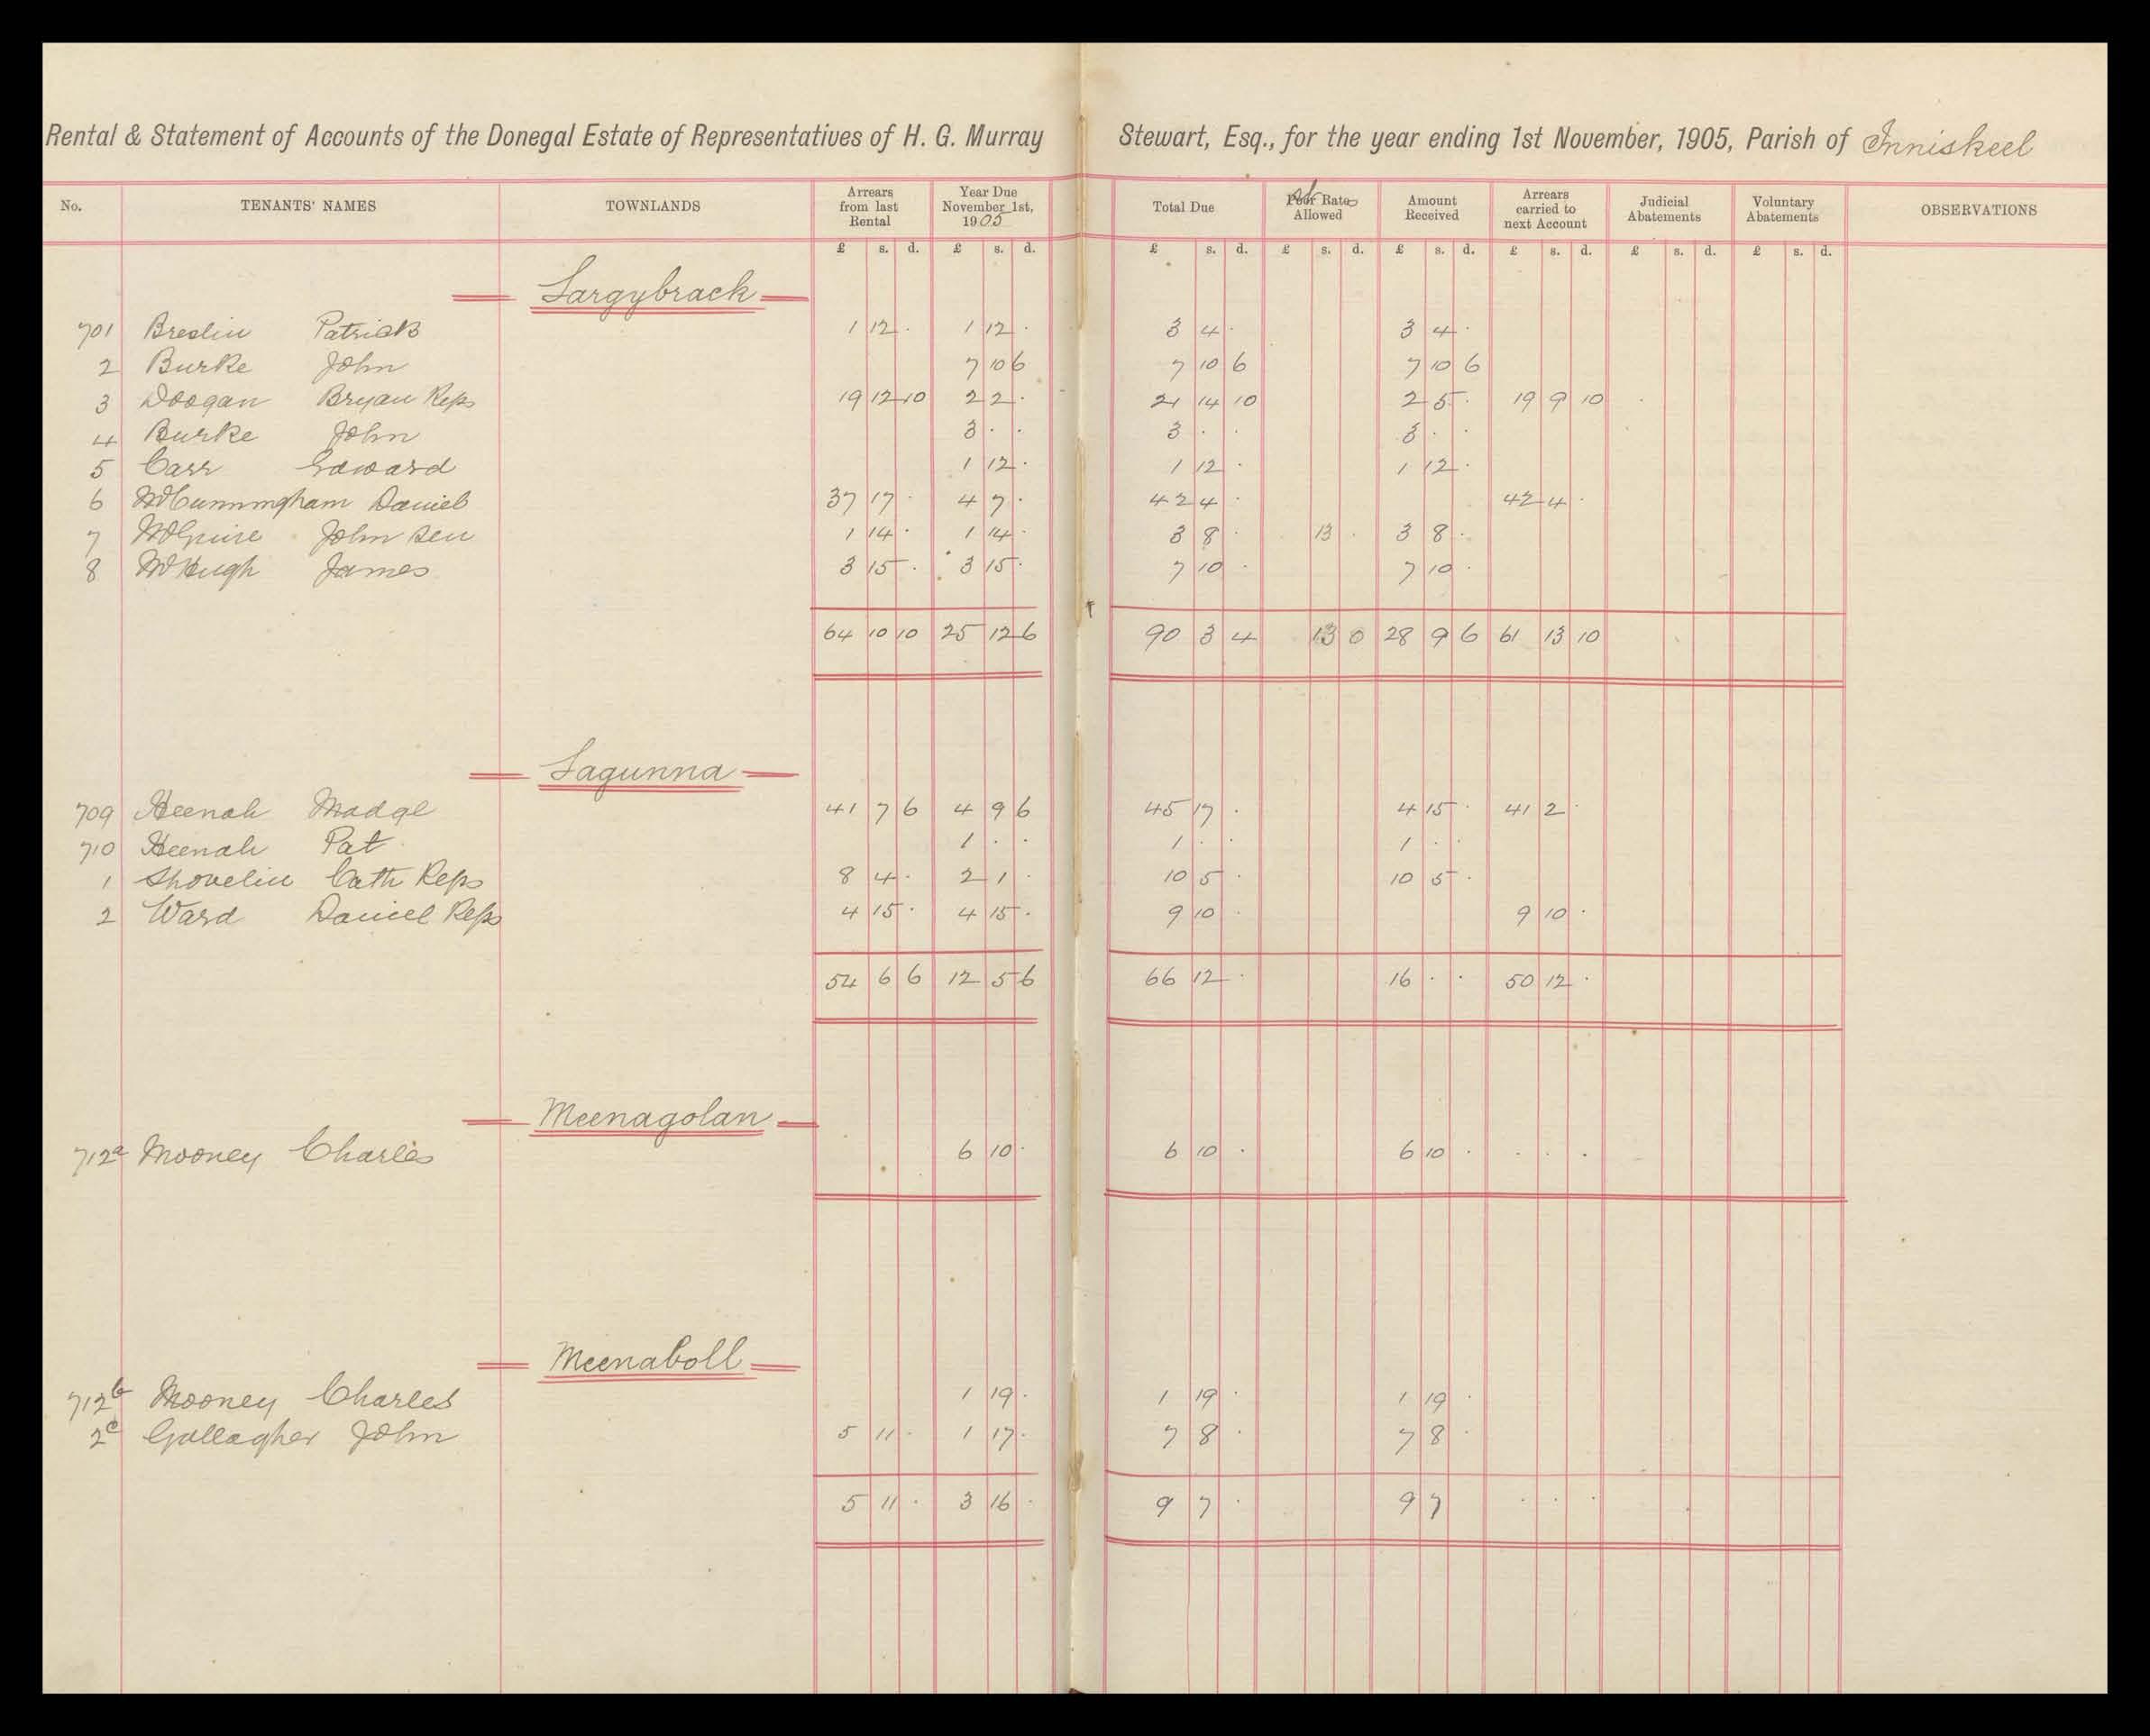 Rental & Statement of Accounts of the Donegal Estate of Representatives of H. G. Murray Stewart, Esq., for the year ending 1st November, 1905, Parish of Inniskeel
No. TENANTS' NAMES TOWNLANDS Arrears from last Rental Year Due November 1st, 1905 Total Due Poor Rate Allowed Amount Received Arrears carried to next Account Judicial Abatements Voluntary Abatements OBSERVATIONS
£ s. d. £ s. d. £ s. d. £ s. d. £ s. d. £ s. d. £ s. d. £ s. d.
Largybrack
701 Breslin Patrick 1 12 · 1 12 · 3 4 · 3 4 ·
2 Burke John 7 10 6 7 10 6 7 10 6
3 Doogan Bryan Reps 19 12 10 2 2 · 21 14 10 2 5 · 19 9 10
4 Burke John 3 · · 3 · · 3 · ·
5 Carr Edward 1 12 · 1 12 · 1 12 ·
6 McCunningham Daniel 37 17 · 4 7 · 42 4 · 42 4 ·
7 McGuire John Sen 1 14 · 1 14 · 3 8 · 13 · 3 8 ·
8 McHugh James 3 15 · 3 15 · 7 10 · 7 10 ·
64 10 10 25 12 6 90 3 4 13 0 28 9 6 61 13 10
Lagunna
709 Heenah Madge 41 7 6 4 9 6 45 17 · 4 15 · 41 2 ·
710 Heenah Pat 1 · · 1 · · 1 · ·
1 Shovelin Cath Reps 8 4 · 2 1 · 10 5 · 10 5 ·
2 Ward Daniel Reps 4 15 · 4 15 · 9 10 · 9 10 ·
54 6 6 12 5 6 66 12 · 16 · · 50 12 ·
Meenagolan
712a Mooney Charles 6 10 · 6 10 · 6 10 · · · ·
Meenaboll
712b Mooney Charles 1 19 · 1 19 · 1 19 ·
2c Gallagher John 5 11 · 1 17 · 7 8 · 7 8 ·
5 11 · 3 16 · 9 7 · 9 7 · · ·